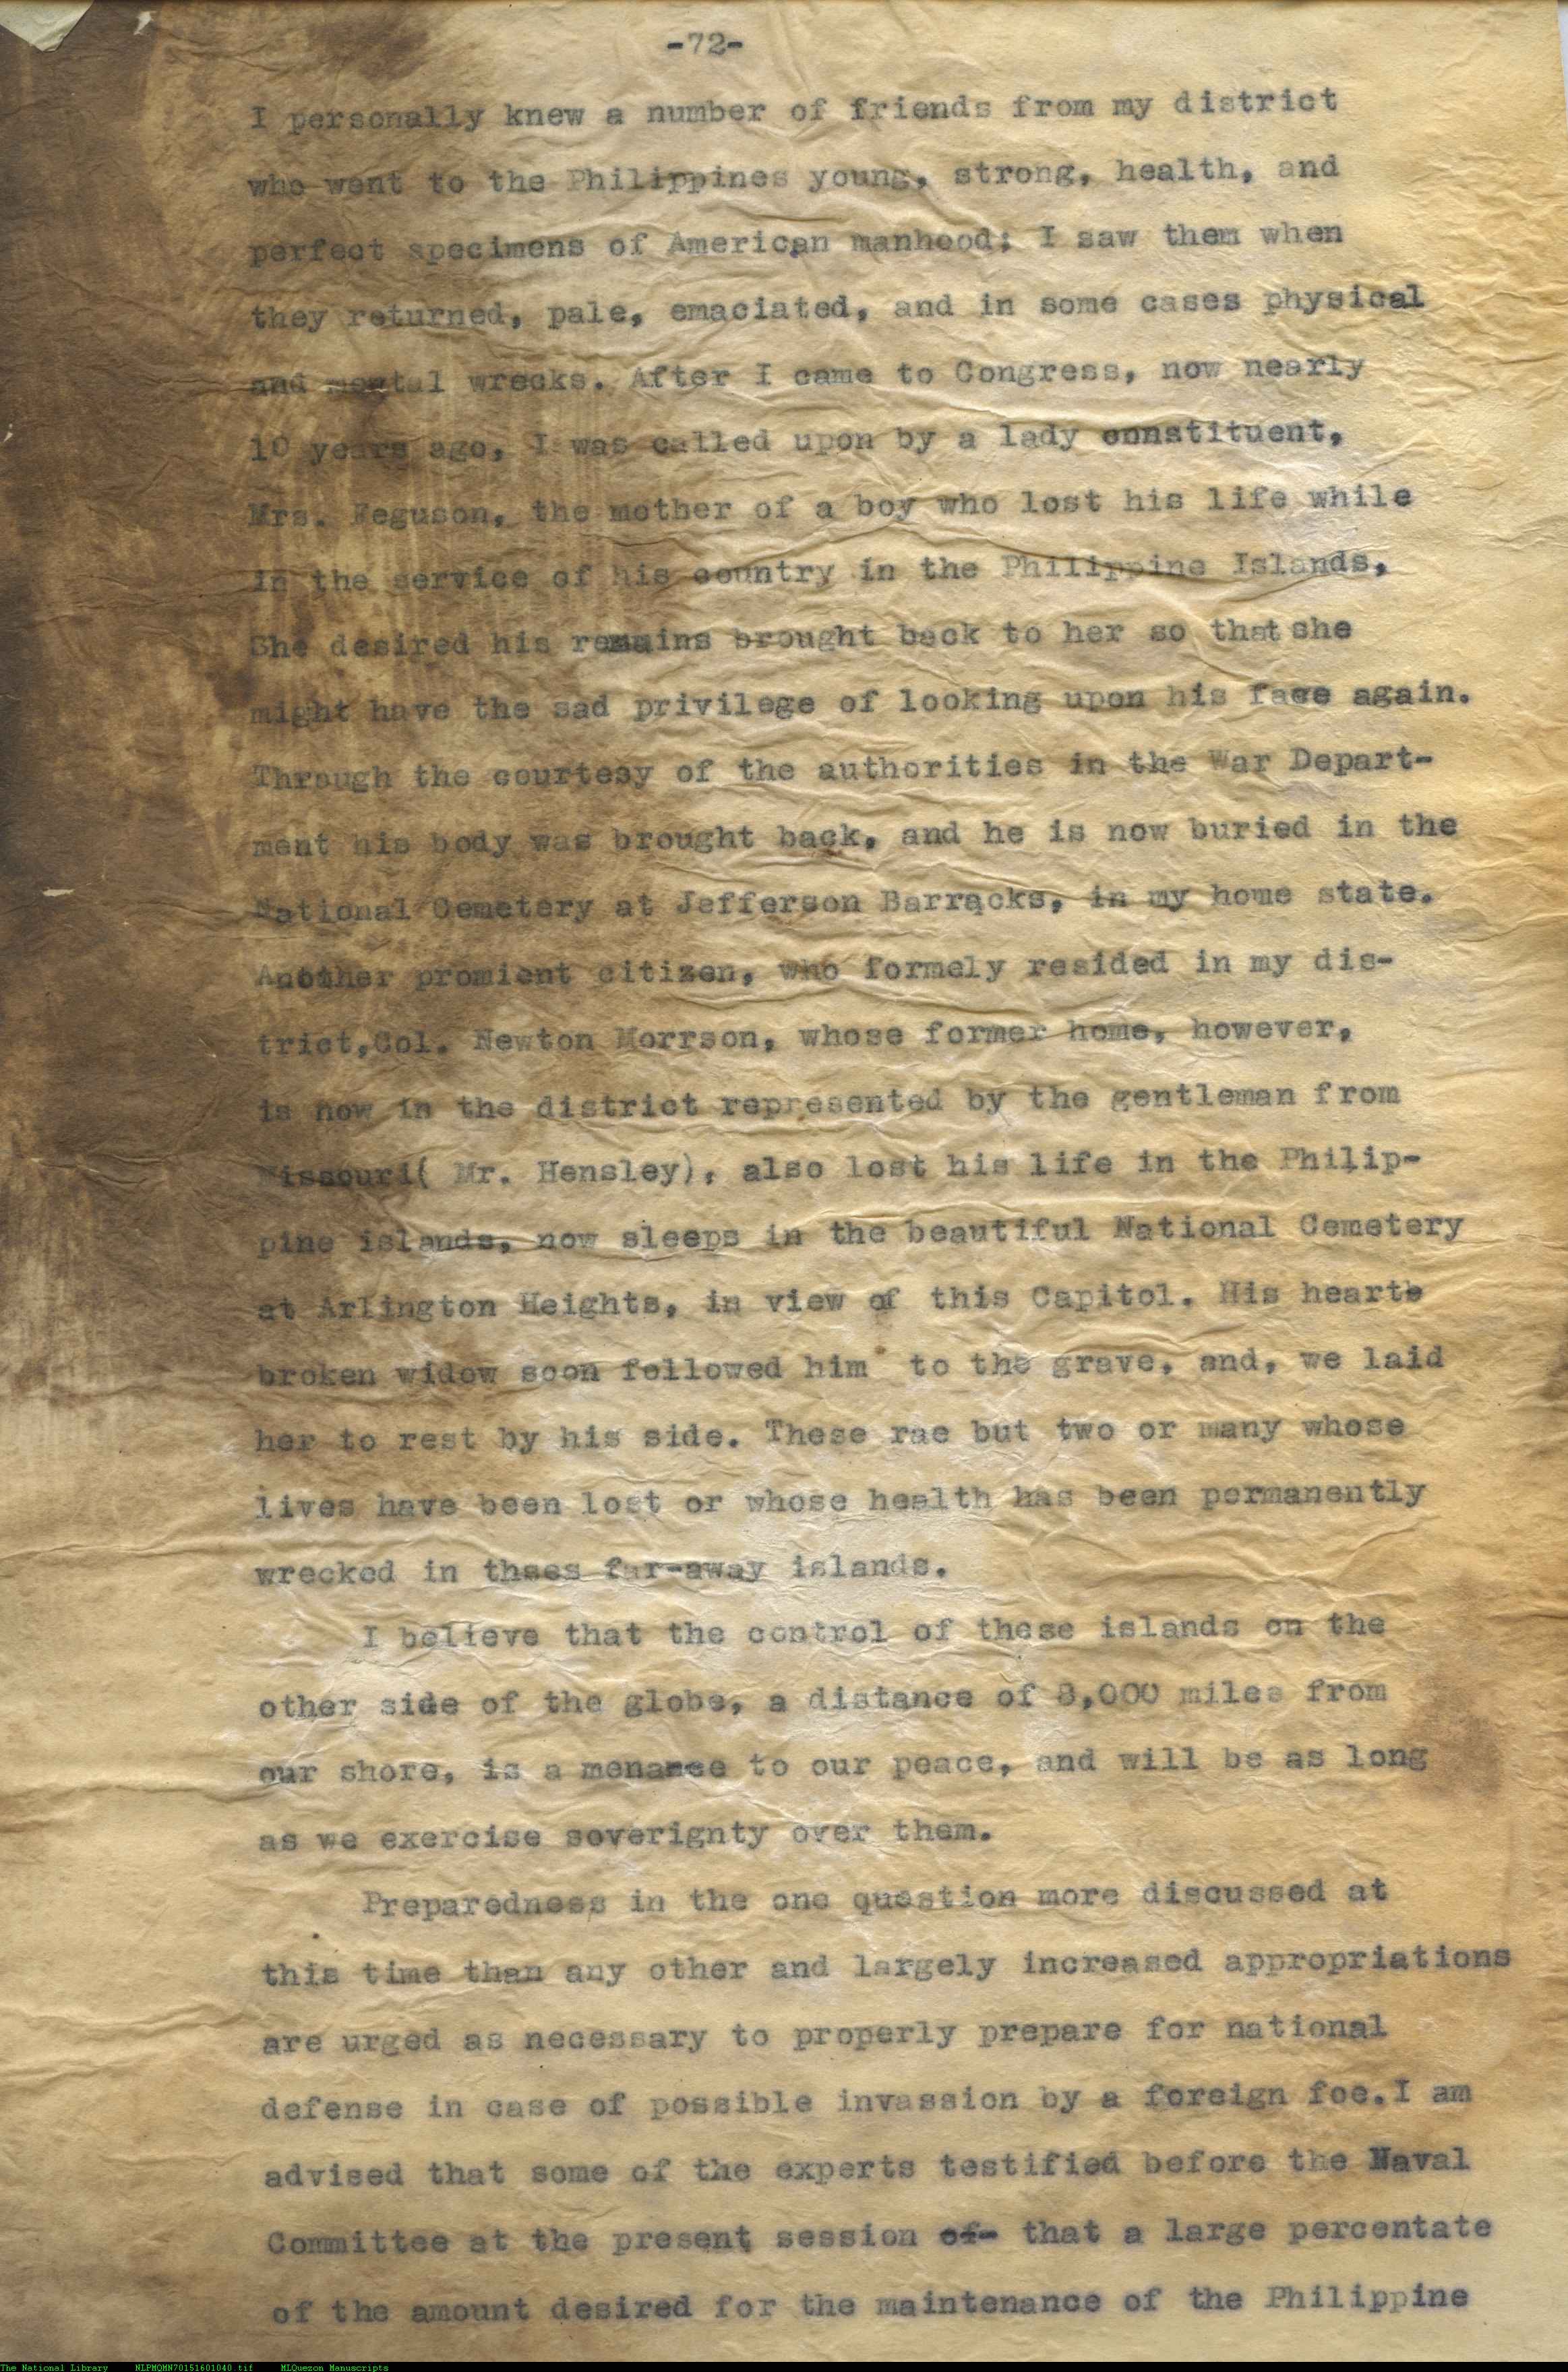 -72-
I personally knew a number of friends from my district
who went to the Philippines young, strong, health, and
perfect specimens of American manhood; I saw them when
they returned, pale, emaciated, and in some cases physical
and mental wrecks. After I came to Congress, now nearly
10 years ago, I was called upon by a lady constituent,
Mrs. Feguson, the mother of a boy who lost his life while
in the service of his country in the Philippine Islands,
She desired his remains brought back to her so that she
might have the sad privilege of looking upon his face again.
Through the courtesy of the authorities in the War Depart-
ment his body was brought back, and he is now buried in the
National Cemetery at Jefferson Barracks, in my home state.
Another promient citizen, who formely resided in my dis-
trict,Col. Newton Morrson, whose former home, however,
is now in the district represented by the gentleman from
Missouri( Mr. Hensley), also lost his life in the Philip-
pine islands, now sleeps in the beautiful National Cemetery
at Arlington Heights, in view of this Capitol. His heart
broken widow soon followed him to the grave, and, we laid
her to rest by his side. These rae but two or many whose
lives have been lost or whose health has been permanently
wrecked in thses far-away islands.
I believe that the control of these islands on the
other side of the globe, a distance of 8,000 miles from
our shore, is a menace to our peace, and will be as long
as we exercise soverignty over them.
Preparedness in the one question more discussed at
this time than any other and largely increased appropriations
are urged as necessary to properly prepare for national
defense in case of possible invassion by a foreign foe.I am
advised that some of the experts testified before the Naval
Committee at the present session of- that a large percentate
of the amount desired for the maintenance of the Philippine
The National Library NLPMQMN70151601040.tif MLQuezon Manuscripts